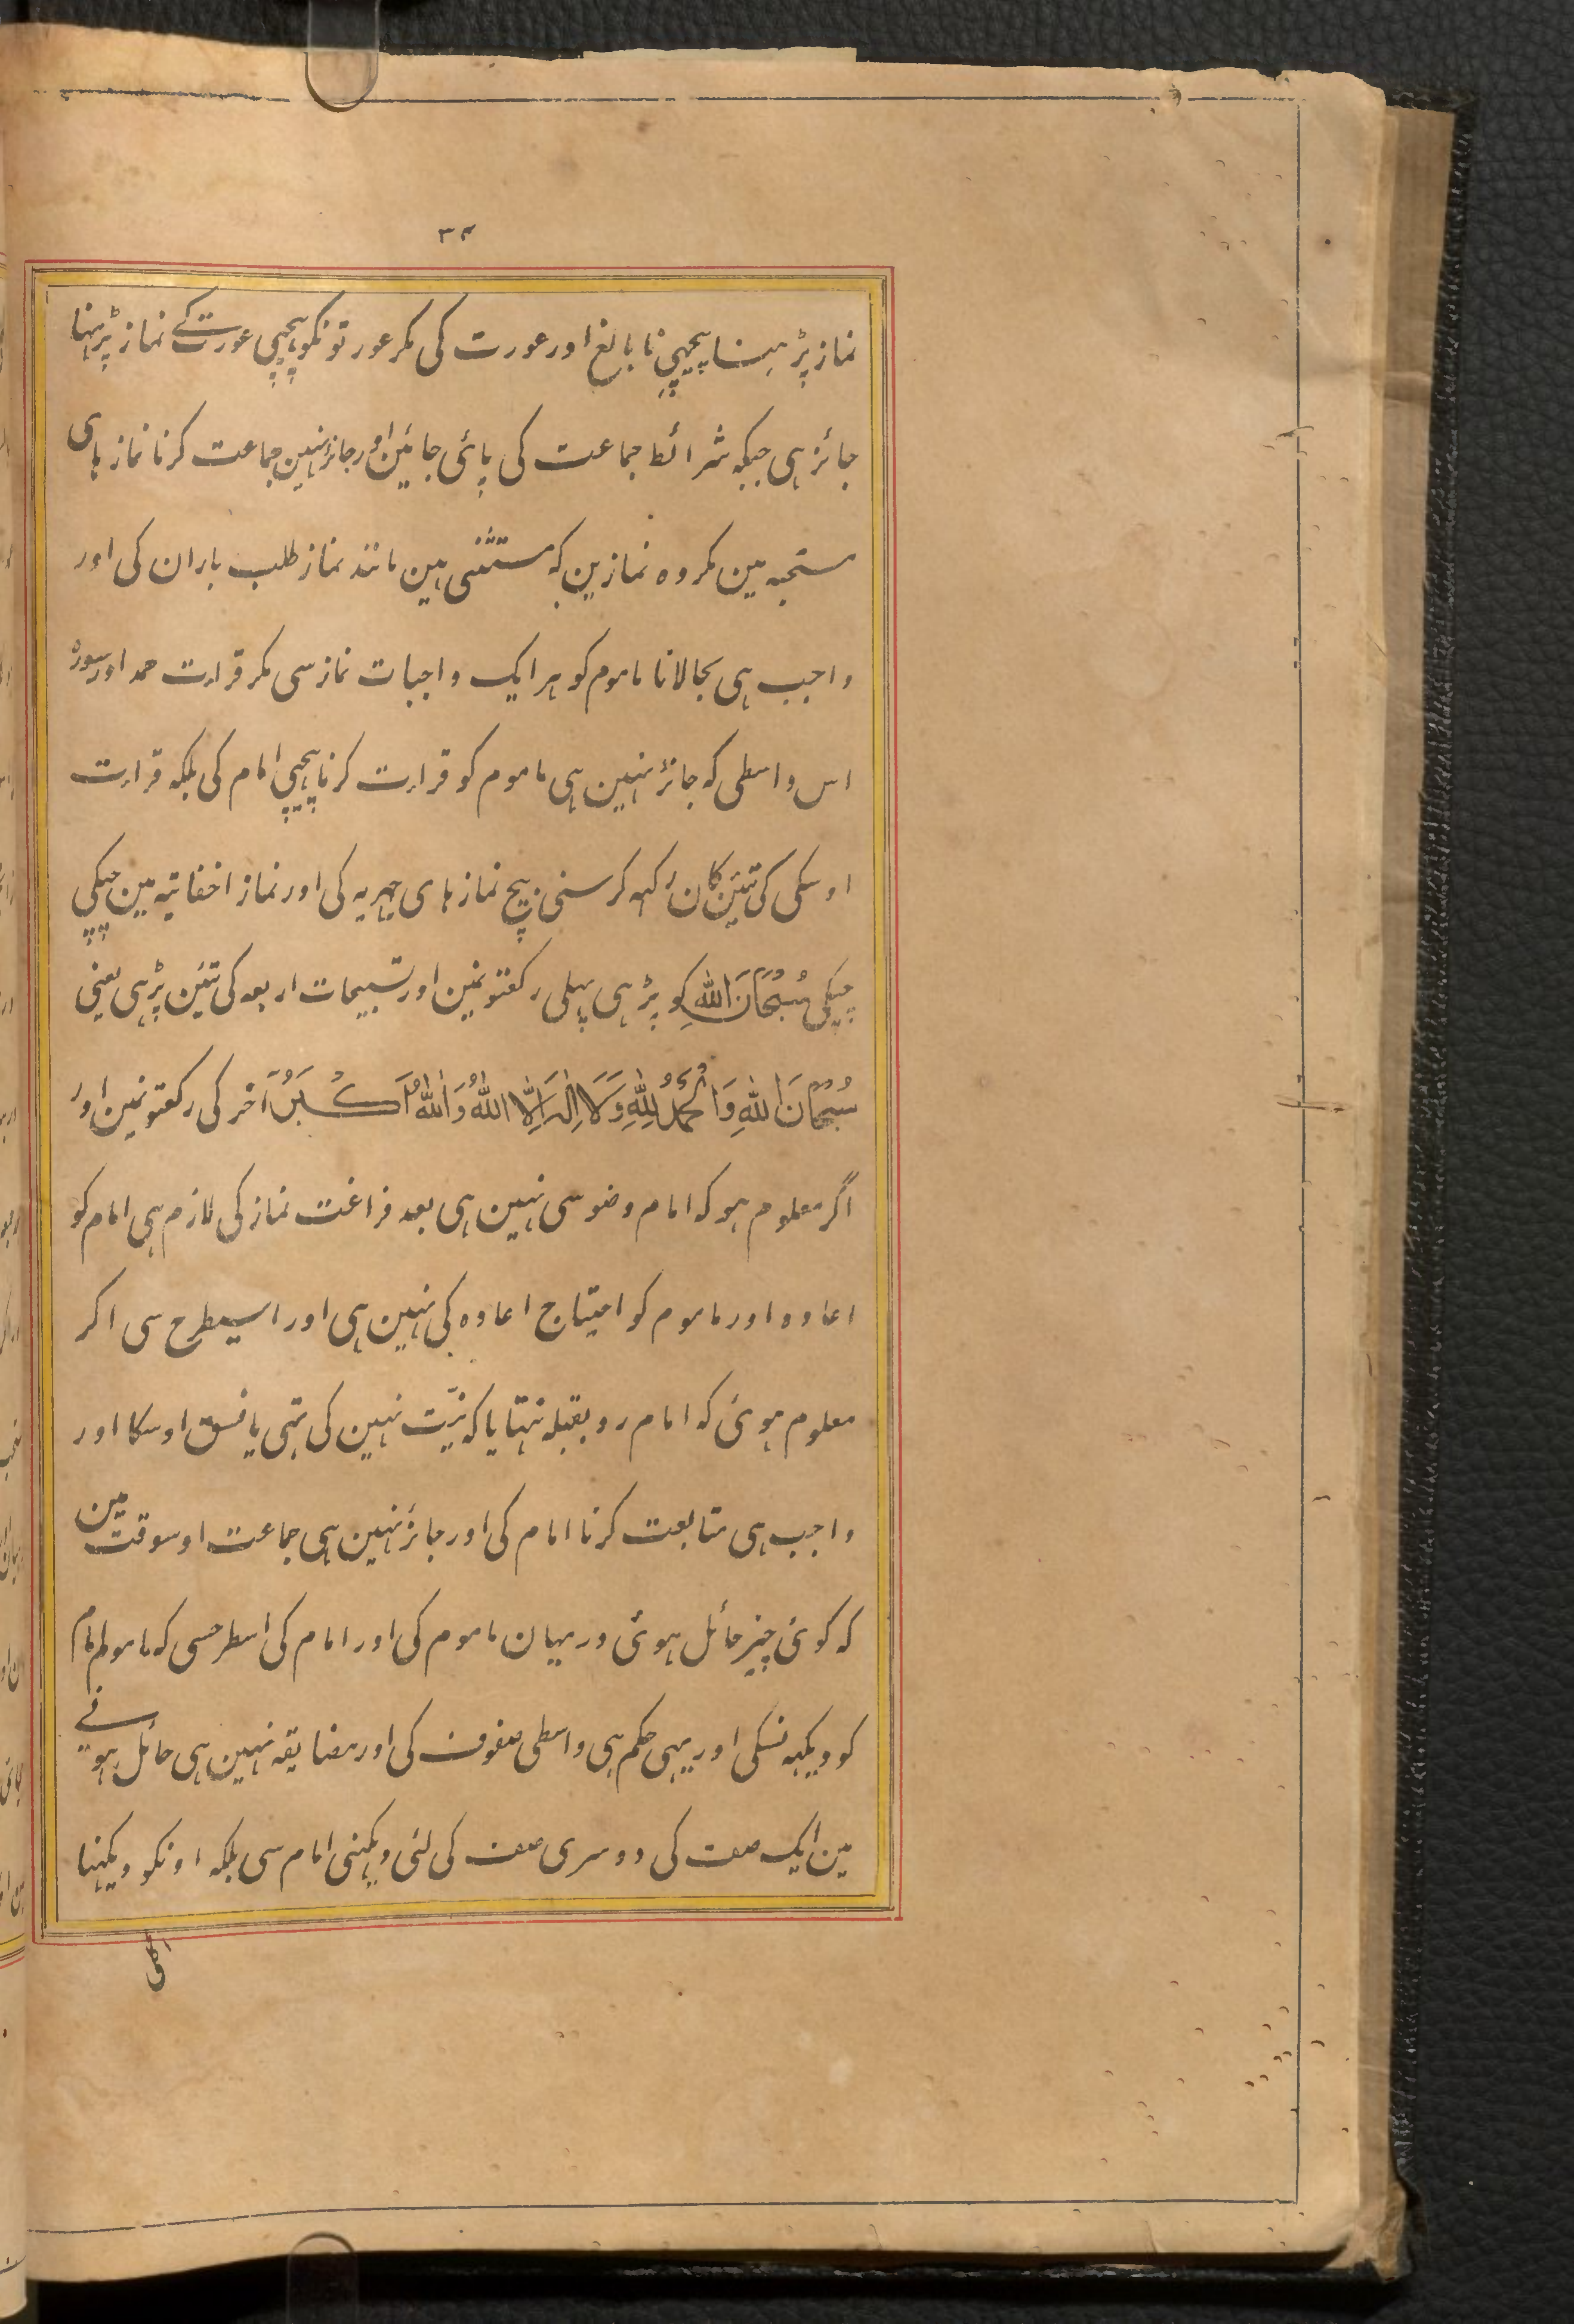 ۳۴
نماز پڑہنا پیچہی نابالغ اور عورت کی مکر عورتونکو پیچہی عورت کے نماز پڑہنا
جائز ہی جبکہ شرائط جماعت کی پائی جائین اور جائز نہین جماعت کرنا نماز ہای
مستحبہ مین مکر وہ نمازین کہ مستثنی ہین مانند نماز طلب باران کی اور
واجب ہی بجالانا ماموم کو ہر ایک واجبات نماز سی مکر قراءت حمد اور سورۂ
اس واسطی کہ جائز نہین ہی ماموم کو قراءت کرنا پیچہی امام کی بلکہ قراءت
اوسکی کی تئین کان رکہہ کر سنی بیچ نماز ہای جہریہ کی اور نماز اخفاتیہ مین چپکی
چپکی سُبْحَانَ اللهِ کو پڑہی پہلی رکعتونمین اور تسبیحات اربعہ کی تئین پڑہی یعنی
سُبْحَانَ اللهِ وَالْحَمْدُ لِلّٰهِ وَلَا اِلٰهَ اِلَّا اللهُ وَاللهُ اَكْبَرُ آخر کی رکعتونمین اور
اگر معلوم ہو کہ امام وضو سی نہین ہی بعد فراغت نماز کی لازم ہی امام کو
اعادہ اور ماموم کو احتیاج اعادہ کی نہین ہی اور اسیطرح سی اکر
معلوم ہوئ کہ امام رو بقبلہ نتہا یا کہ نیّت نہین کی تہی یا فسق اوسکا اور
واجب ہی متابعت کرنا امام کی اور جائز نہین ہی جماعت اوسوقت مین
کہ کوئ چیز حائل ہوئ درمیان ماموم کی اور امام کی اسطرحسی کہ ماموم امام
کو دیکہہ نسکی اور یہی حکم ہی واسطی صفوف کی اور مضایقہ نہین ہی حائل ہونے
مین ایک صف کی دوسری صف کی لئی دیکہنی امام سی بلکہ اونکو دیکہنا